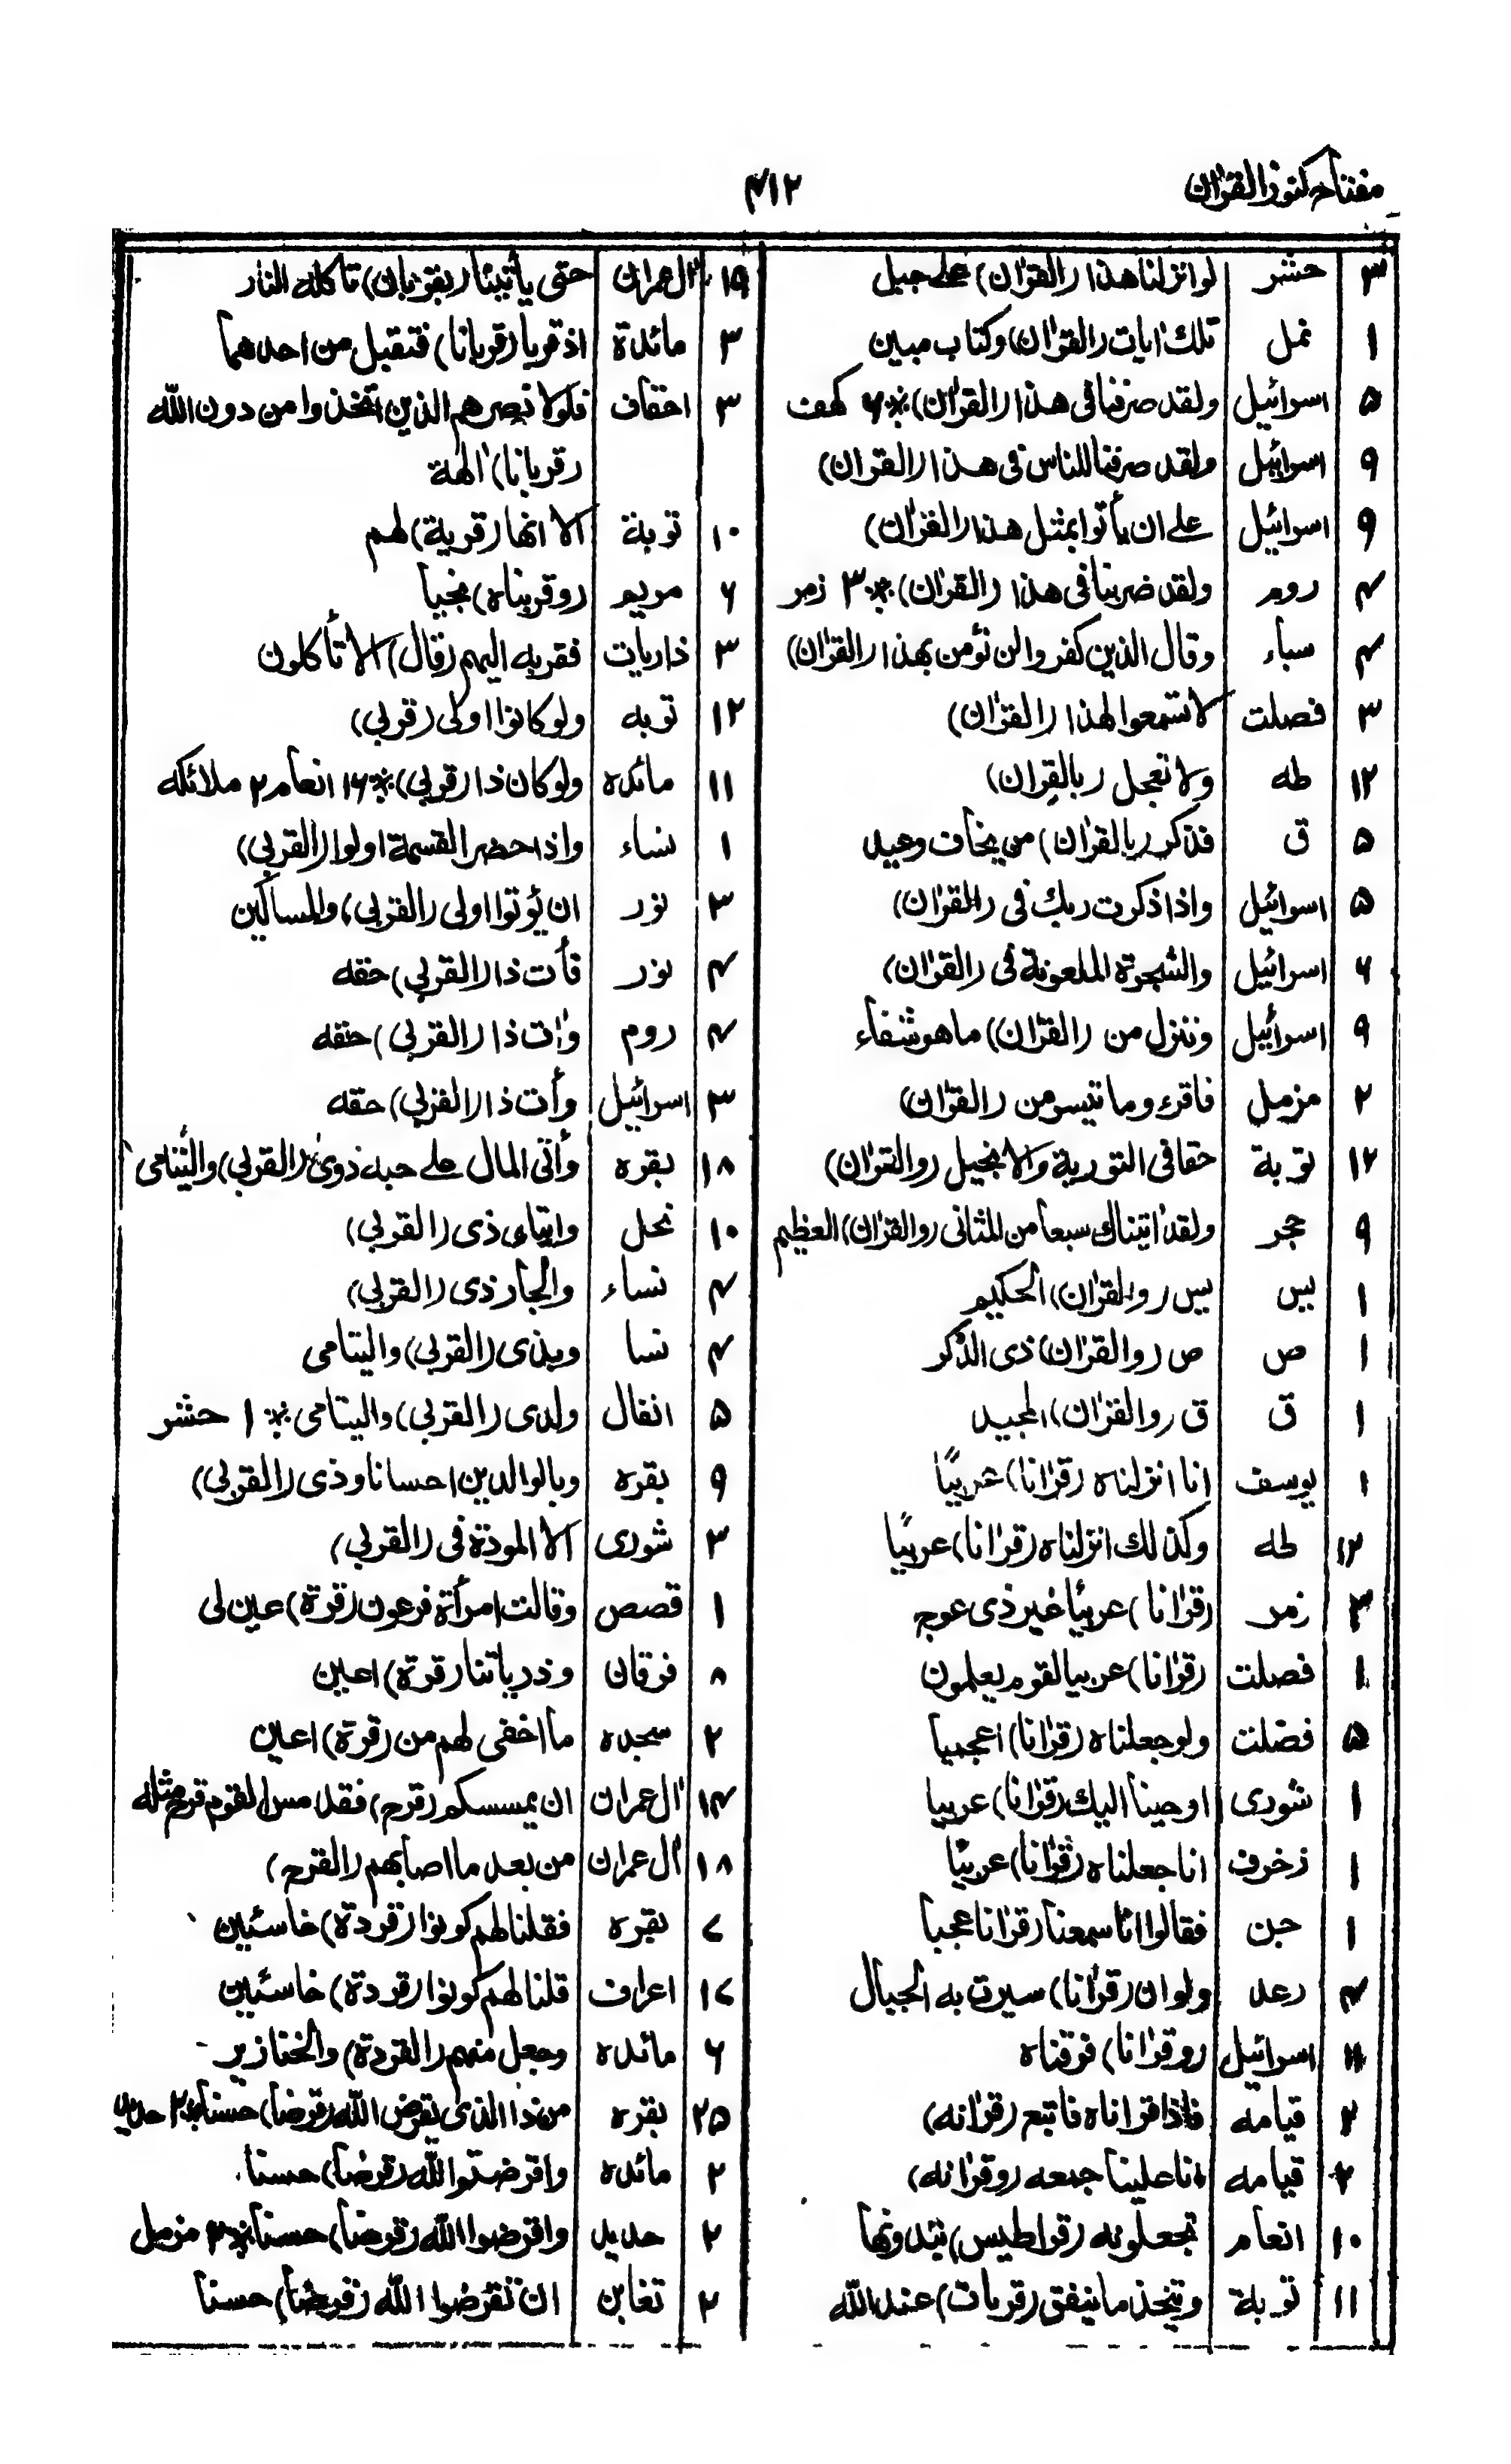 مفتاح كنوز القرآن
۴۱۲
۳ حشر لو انزلنا هذا (القرآن) على جبل
۱ نمل تلك ايات (القرآن) وكتاب مبين
۵ اسرائيل ولقد صرفنا فى هذا (القرآن) * ۶ كهف
۹ اسرائيل ولقد صرفنا للناس فى هذا (القرآن)
۹ اسرائيل على ان يأتوا بمثل هذا (القرآن)
۴ روم ولقد ضربنا فى هذا (القرآن) * ۳ زمر
۴ سباء وقال الذين كفروا لن نؤمن بهذا (القرآن)
۳ فصلت لا تسمعوا لهذا (القرآن)
۱۲ طه ولا تعجل (بالقرآن)
۵ ق فذكر (بالقرآن) من يخاف وعيد
۵ اسرائيل واذا ذكرت ربك فى (القرآن)
۶ اسرائيل والشجرة الملعونة فى (القرآن)
۹ اسرائيل وننزل من (القرآن) ما هو شفاء
۲ مزمل فاقرءوا ما تيسر من (القرآن)
۱۲ توبة حقا فى التورية والانجيل (والقرآن)
۹ حجر ولقد اتيناك سبعا من المثانى (والقرآن) العظيم
۱ يس يس (والقرآن) الحكيم
۱ ص ص (والقرآن) ذى الذكر
۱ ق ق (والقرآن) المجيد
۱ يوسف انا انزلناه (قرآنا) عربيًا
۱۲ طه وكذلك انزلناه (قرآنا) عربيًا
۳ زمر (قرآنا) عربيًا غير ذى عوج
۱ فصلت (قرآنا) عربيا لقوم يعلمون
۵ فصلت ولو جعلناه (قرآنا) اعجميا
۱ شورى اوحينا اليك (قرآنا) عربيا
۱ زخرف انا جعلناه (قرآنا) عربيًا
۱ جن فقالوا انا سمعنا (قرآنا) عجبا
۴ رعد ولو ان (قرآنا) سيرت به الجبال
۱۲ اسرائيل (وقرآنا) فرقناه
۲ قيامه فاذا قراناه فاتبع (قرآنه)
۲ قيامه ان علينا جمعه (وقرآنه)
۱۰ انعام تجعلونه (قراطيس) تبدونها
۱۱ توبة ويتخذ ما ينفق (قربات) عند الله
۱۹ آل عمران حتى يأتينا (بقربان) تاكله النار
۳ مائدة اذ قربا (قربانا) فتقبل من احدهما
۳ احقاف فلولا نصرهم الذين اتخذوا من دون الله
(قربانا) الهة
۱۰ توبة الا انها (قربة) لهم
۶ مريم (وقربناه) نجيا
۳ ذاريات فقربه اليهم (قال) الا تأكلون
۱۲ توبه ولو كانوا اولى (قربى)
۱۱ مائده ولو كان ذا (قربى) * ۱۶ انعام ۲ ملائكه
۱ نساء واذا حضر القسمة اولوا (القربى)
۳ نور ان يؤتوا اولى (القربى) والمساكين
۴ نور فأت ذا (القربى) حقه
۴ روم وآت ذا (القربى) حقه
۳ اسرائيل وأت ذا (القربى) حقه
۱۸ بقره وأتى المال على حبه ذوى (القربى) واليتامى
۱۰ نحل وايتاى ذى (القربى)
۴ نساء والجار ذى (القربى)
۴ نسا وبذى (القربى) واليتامى
۵ انفال ولذى (القربى) واليتامى * ۱ حشر
۹ بقره وبالوالدين احسانا وذى (القربى)
۳ شورى الا المودة فى (القربى)
۱ قصص وقالت امرأة فرعون (قرة) عين لى
۸ فرقان وذرياتنا (قرة) اعين
۲ سجده ما اخفى لهم من (قرة) اعين
۱۴ آل عمران ان يمسسكم (قرح) فقد مس القوم قرح مثله
۱۸ آل عمران من بعد ما اصابهم (القرح)
۷ بقره فقلنا لهم كونوا (قردة) خاسئين
۱۷ اعراف قلنا لهم كونوا (قردة) خاسئين
۶ مائده وجعل منهم (القردة) والخنازير
۲۵ بقره من ذا الذى يقرض الله (قرضا) حسنا * ۲ حديد
۲ مائده واقرضتوا لله (قرضا) حسنا
۲ حديد واقرضوا الله (قرضا) حسنا * ۲ مزمل
۲ تغابن ان تقرضوا الله (قرضا) حسنا